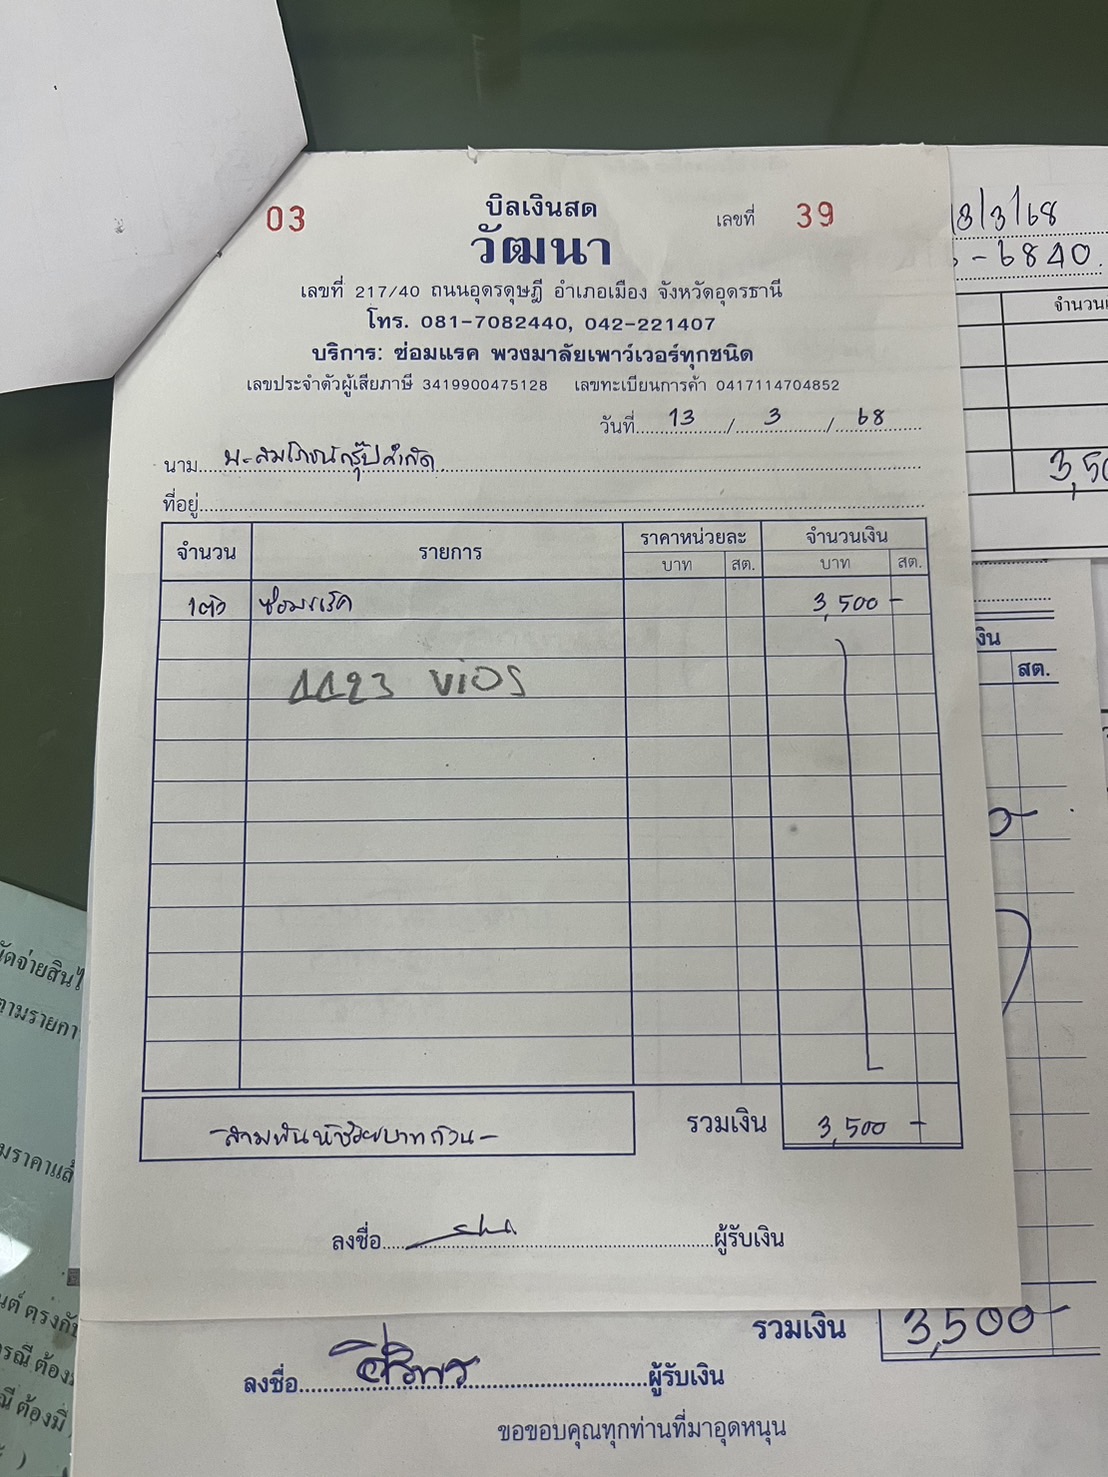 03
บิลเงินสด
เลขที่ 39
วัฒนา
เลขที่ 217/40 ถนนอุดรดุษฎี อำเภอเมือง จังหวัดอุดรธานี
โทร. 081-7082440, 042-221407
บริการ: ซ่อมแรค พวงมาลัยเพาว์เวอร์ทุกชนิด
เลขประจำตัวผู้เสียภาษี 3419900475128 เลขทะเบียนการค้า 0417114704852
วันที่ 13 / 3 / 68
นาม บ.สมโภชน์กรุ๊ปจำกัด
ที่อยู่
จำนวน รายการ ราคาหน่วยละ จำนวนเงิน
บาท สต. บาท สต.
1ตัว ซ่อมแร็ค 3,500 -
1123 ViOS
-สามพันห้าร้อยบาทถ้วน-
รวมเงิน 3,500 -
ลงชื่อ ผู้รับเงิน
13/3/68
- 6840
3,50
เงิน
สต.
รวมเงิน 3,500-
ลงชื่อ ผู้รับเงิน
ขอขอบคุณทุกท่านที่มาอุดหนุน
ตามรายกา
ต้องมี